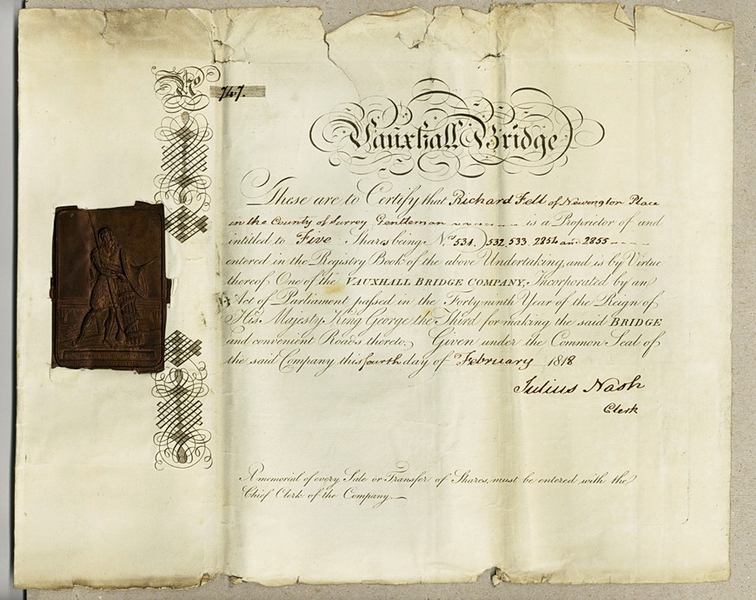 No 747.
Vauxhall Bridge
These are to Certify that Richard Fell of Newington Place
in the County of Surrey Gentleman is a Proprietor of and
intitled to Five Shares being Nos. 531. 532. 533. 2854 and 2855
entered in the Registry Book of the above Undertaking, and is by Virtue
thereof One of the VAUXHALL BRIDGE COMPANY, Incorporated by an
Act of Parliament passed in the Forty-ninth Year of the Reign of
His Majesty King George the Third for making the said BRIDGE
and convenient Roads thereto. Given under the Common Seal of
the said Company this fourth day of February 1818
Julius Nash
Clerk
A memorial of every Sale or Transfer of Shares, must be entered with the
Chief Clerk of the Company.